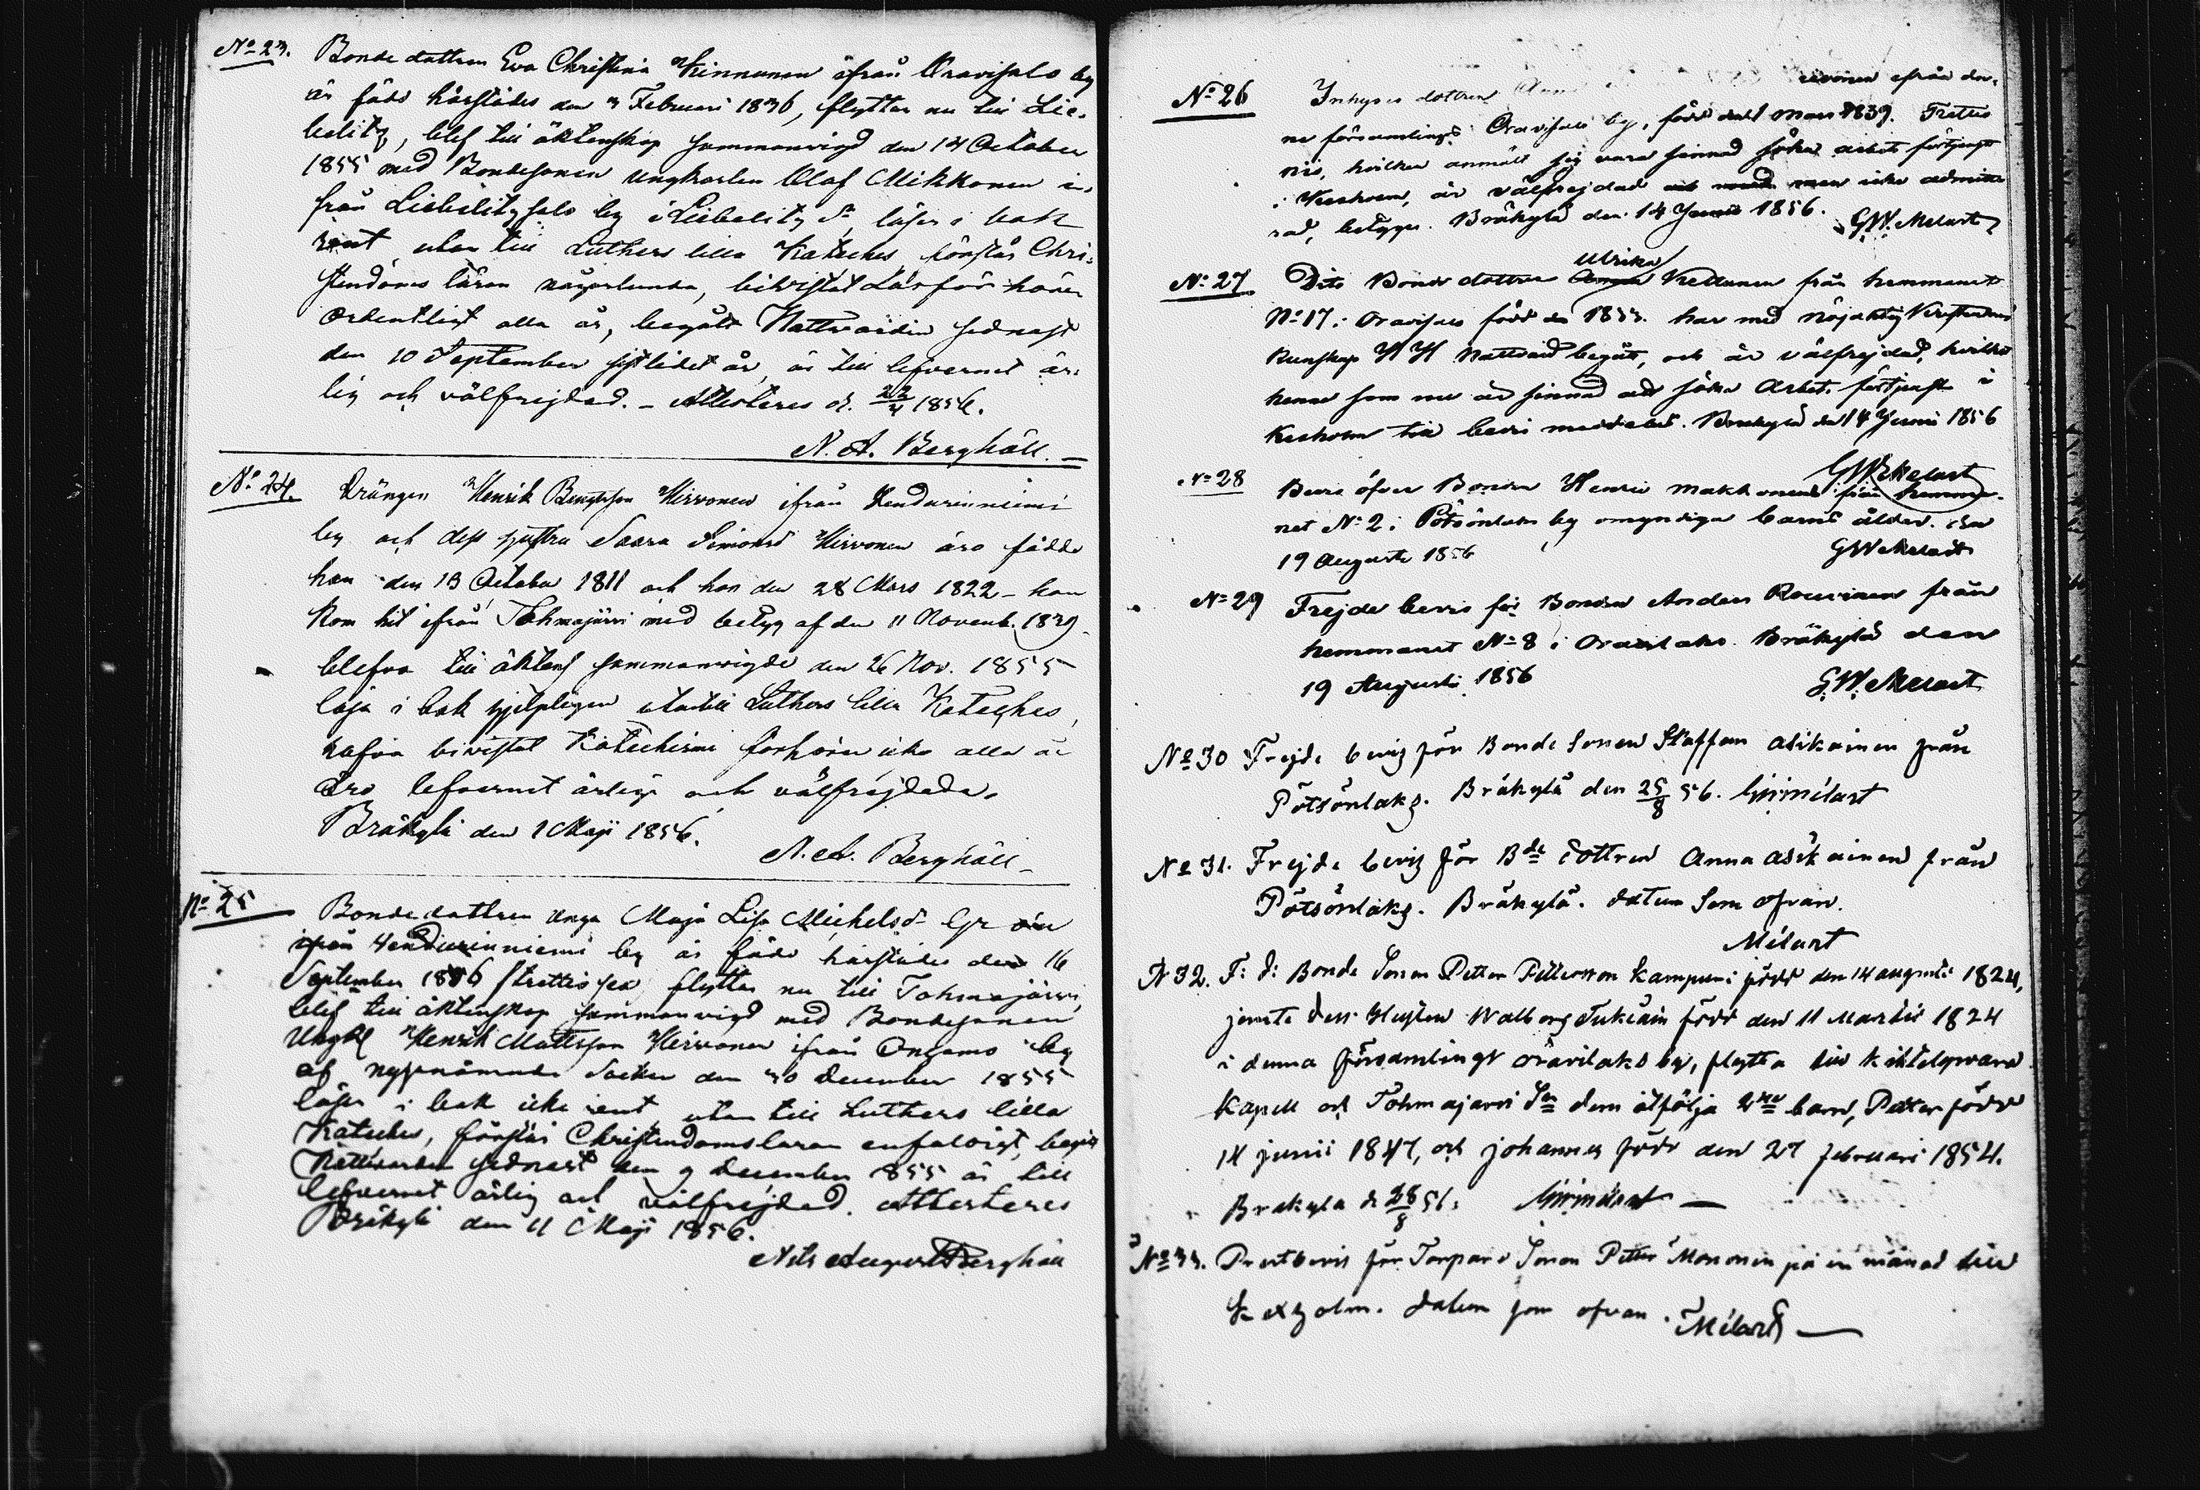 No 23. Bondedottren Eva Christina Kinnunen ifrån Oravisalo by
är född härstädes den 3 Februari 1836, flyttar nu till Lie-
belitz, blef till äktenskap sammanvigd den 14 October
1855 med Bondesonen ungkarlen Olof Mikkonen i-
från Liebelitzsalo by i Liebelitz Sn läser i bok
rent utan till Luthers lilla Kateches, förstår Chri-
stendoms läran någorlunda, bivistat Läsförhören
ordentligt alla år, begått Nattvarden sednast
den 10 September sistledet år, är till lefvernet är-
lig och välfrejdad. – Attesteres d. 22/4 1856.
N. A. Berghäll. –
No 24. Drängen Henrik Bengtsson Hirvonen ifrån Haudurinniemi
by och dess hustru Saara Simonsd Hirvonen äro födde
han den 13 October 1811 och hon den 28 Mars 1822 – han
kom hit ifrån Tohmajärvi med betyg af den 11 Novemb. 1839
blefvo till äktensk sammanvigde den 26 Nov. 1855
läsa i bok hjelpligen utantill Luthers lilla Kateches,
hafva bivistat Katechismi förhören icke alla år
äro lefvernet ärliga och välfrejdade.
Bräkylä den 1 Maji 1856.
N. A. Berghäll –
No 25 Bondedottren unga Maja Lisa Michelsd
ifrån by är född härstädes den 16
September 1836 /trettiosex/ flyttar nu till Tohmajärvi,
blef till äktenskap sammanvigd med Bondesonen
Ungk Henrik Mattsson Hirvonen ifrån Onkamo by
af nyssnämnde Socken den 30 December 1855
läser i bok icke rent utan till Luthers lilla
Kateches, förstår Christendomsläran enfaldigt, begått
Nattvarden sednast den 9 December 1855 är till
lefvernet ärlig och välfrejdad. Attesteres
Bräkylä den 11 Maji 1856.
Nils August Berghäll
No 26 Inhyses dottren ifrån den-
na församlings Oravisalo by, född den 1 Mars 1839. Trettio
nio, hvilken anmält sig vara sinnad söka arbets förtjenst
i Kexholm, är välfrejdad men icke admitte
rad, betygar. Bräkylä den 14 Junii 1856. GW. Melart
Ulrika
No 27 Dito Bonde dottren Kettunen från hemmanet
No 17 i Oravisalo född år 1833. har med nöjaktig Kristendoms
kunskap H H Nattvard begått, och är välfrejdad, hvilket
henne som nu är sinnad att söka arbets förtjenst i
Kexholm till bevis meddelas. Bräkylä den 14 Junii 1856
GWMelart
No 28 Bevis öfver Bonden Henric Makkonens från hemma-
net No 2 i Pötsönlaks by omyndiga barns ålder. den
19 Augusti 1856 GWMelart
No 29 Frejde bevis för Bonden Anders Rouvinen från
hemmanet No 8 i Oravilaks. Bräkylä den
19 Augusti 1856 G.W. Melart
No 30 Frejde bevis för Bonde Sonen Staffan Asikainen från
Pötsönlaks. Bräkylä den 25/8 56. GWMelart
No 31. Frejde bevis för Bde dottren Anna Asikainen från
Pötsönlaks. Bräkylä. datum Som ofvan.
Melart
N 32. F: d: Bonde Sonen Petter Pettersson Kampuri född den 14 augusti 1824,
jemte dess Hustru Walborg Tukiain född den 11 Martii 1824
i denna församlings Oravilaks by, flytta till Kiktelysvara
Kapell och Tohmajärvi Sn dem åtfölja 2ne barn, Petter född
14 junii 1847, och Johannes född den 27 februari 1854.
Bräkylä d. 28/8 56. GWMelart –
No 33. Prestbevis för Torpare Sonen Petter Mononen på en månad till
Kexholm. datum som ofvan. Melart –